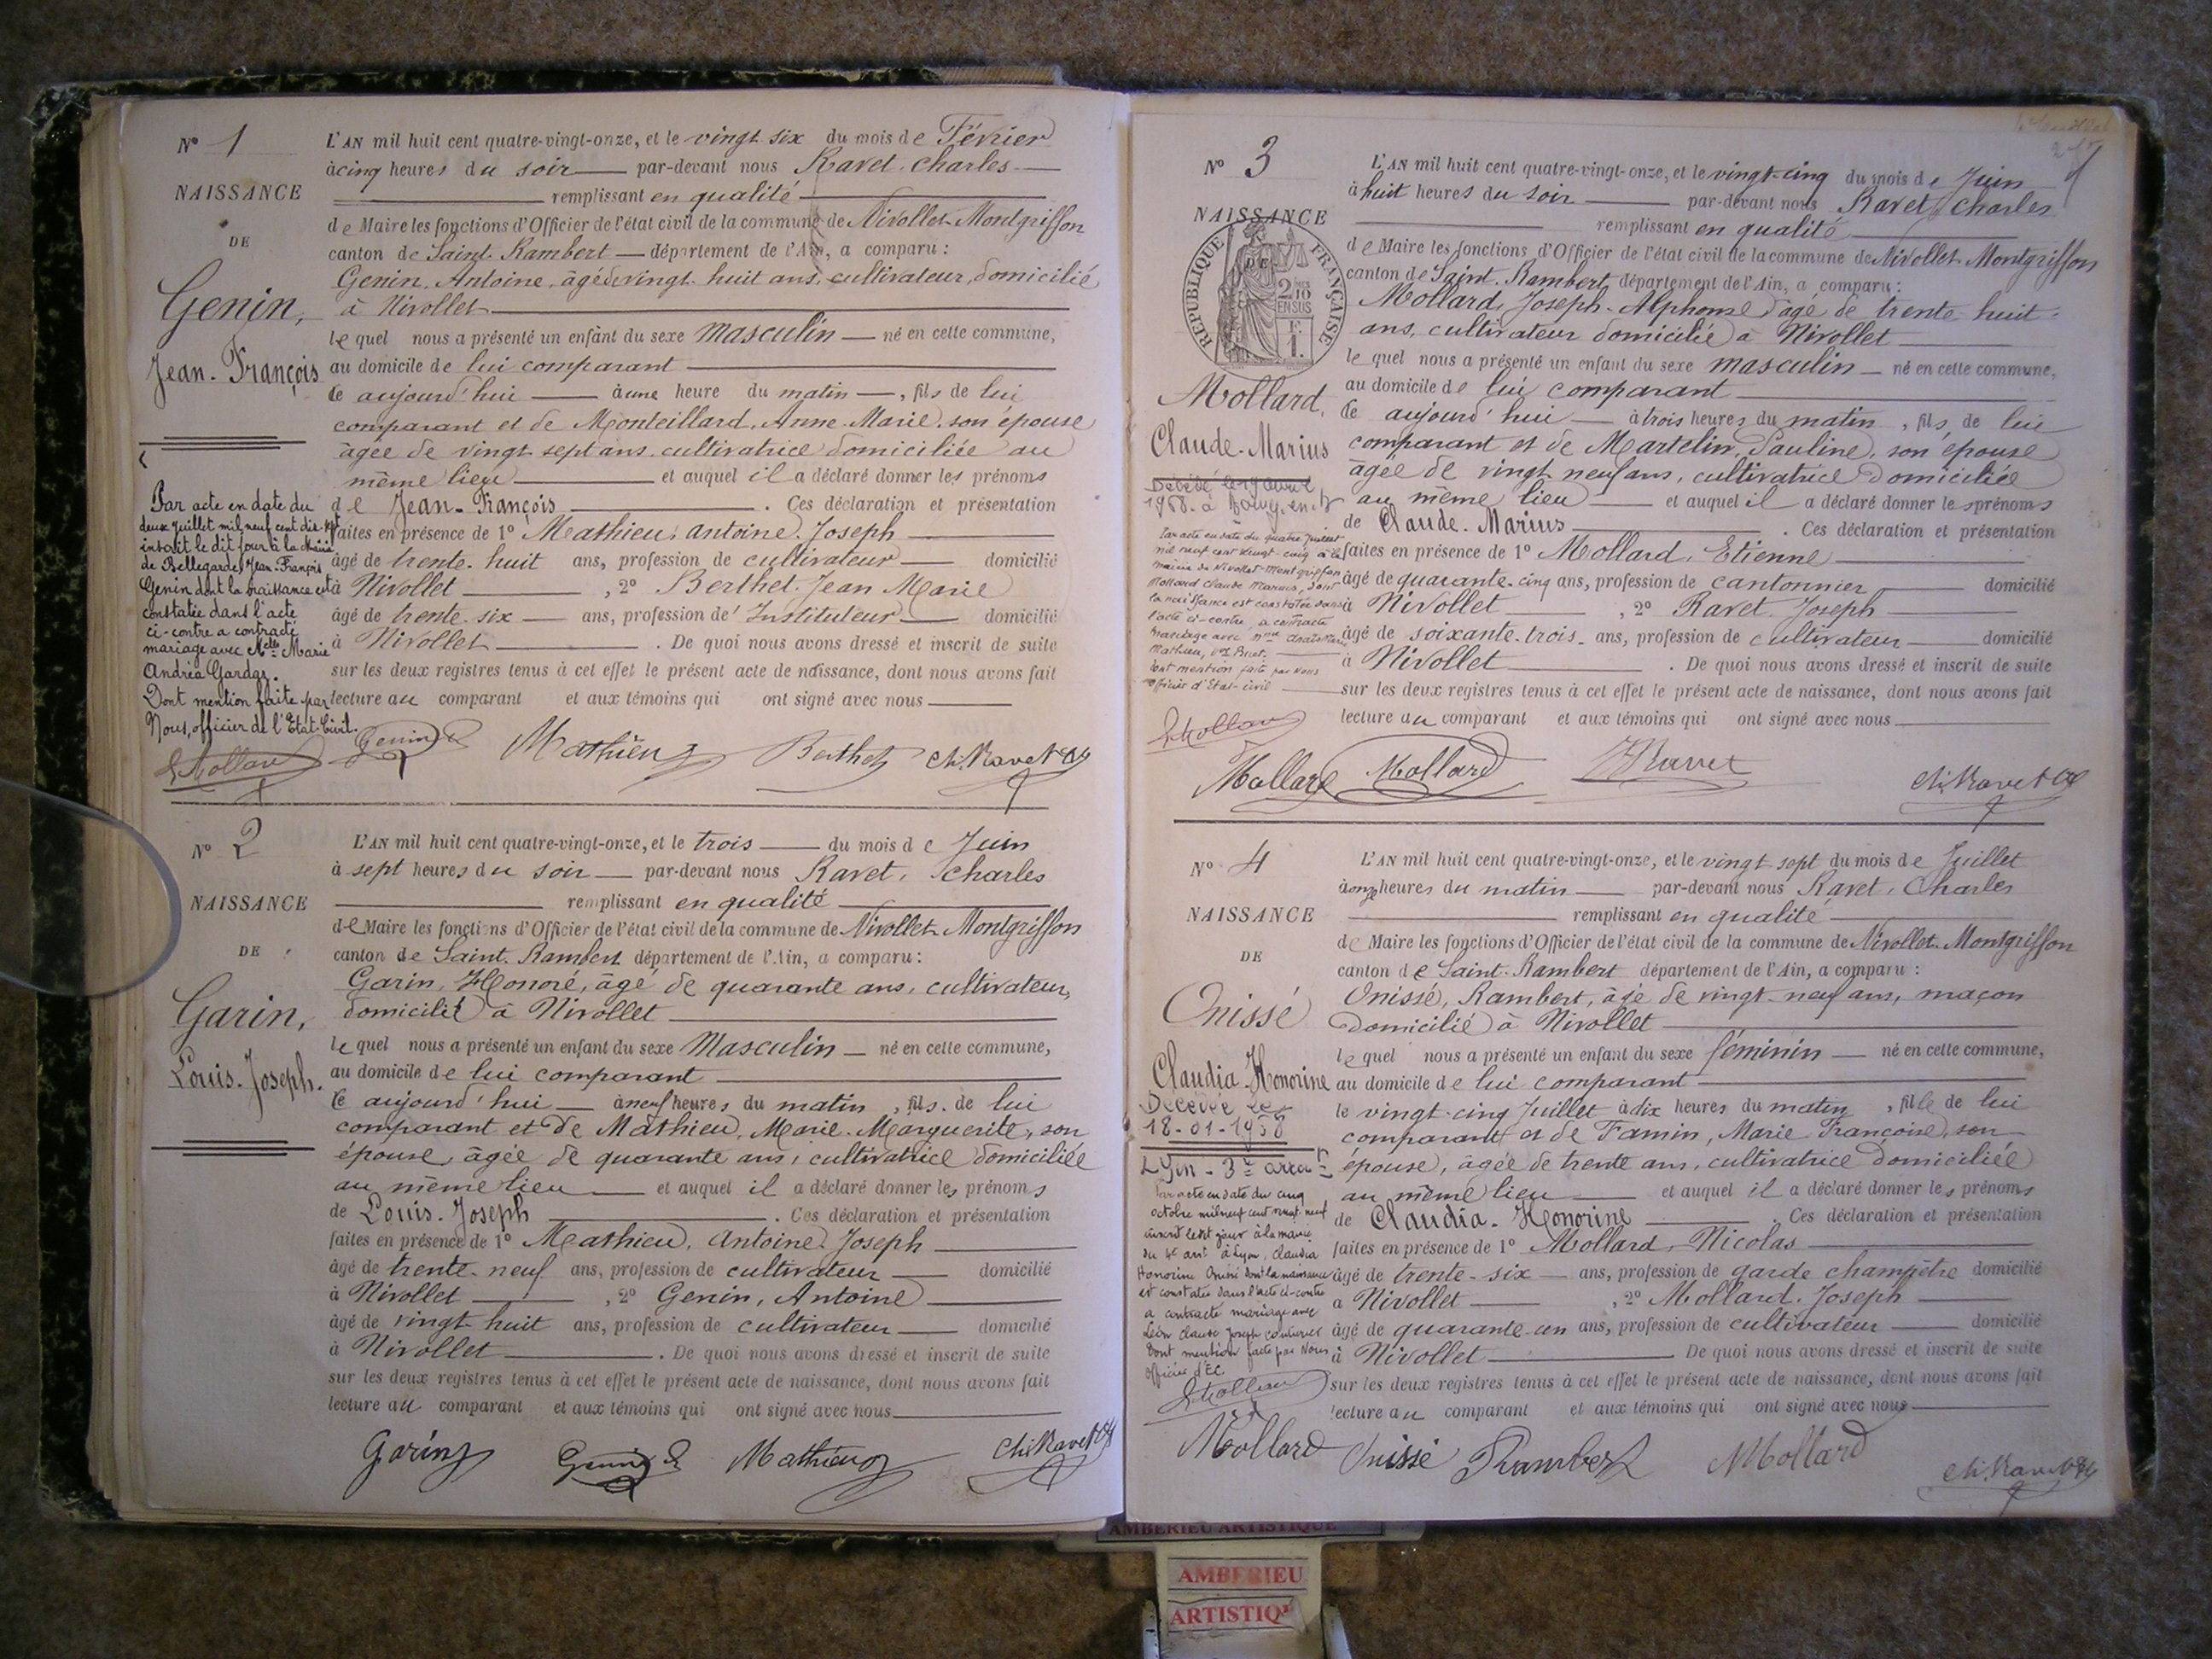 N° 1
NAISSANCE
DE
Genin,
Jean-François
L'AN mil huit cent quatre-vingt-onze, et le vingt six du mois de Février
à cinq heures du soir par-devant nous Ravet, Charles
remplissant en qualité
de Maire les fonctions d'Officier de l'état civil de la commune de Nivollet-Montgriffon
canton de Saint-Rambert département de l'Ain, a comparu :
Genin, Antoine, âgé de vingt-huit ans, cultivateur, domicilié
à Nivollet
le quel nous a présenté un enfant du sexe masculin né en cette commune,
au domicile de lui comparant
le aujourd'hui à une heure du matin, fils de lui
comparant et de Monteillard, Anne-Marie, son épouse
âgée de vingt-sept ans, cultivatrice domiciliée au
même lieu et auquel il a déclaré donner les prénoms
de Jean-François. Ces déclaration et présentation
faites en présence de 1° Mathieu, Antoine-Joseph
âgé de trente-huit ans, profession de cultivateur domicilié
à Nivollet, 2° Berthet, Jean Marie
âgé de trente-six ans, profession d'Instituteur domicilié
à Nivollet. De quoi nous avons dressé et inscrit de suite
sur les deux registres tenus à cet effet le présent acte de naissance, dont nous avons fait
lecture au comparant et aux témoins qui ont signé avec nous
Par acte en date du
deux Juillet mil neuf cent dix-sept
inscrit le dit jour à la Mairie
de Bellegarde, Jean-François
Genin dont la naissance est
constatée dans l'acte
ci-contre a contracté
mariage avec Melle Marie
Andréa Gardaz.
Dont mention faite par
Nous, officier de l'Etat-Civil.
Mollard Genin Mathieu Berthet Ch. Ravet
N° 2
NAISSANCE
DE
Garin,
Louis-Joseph.
L'AN mil huit cent quatre-vingt-onze, et le trois du mois de Juin
à sept heures du soir par-devant nous Ravet, Charles
remplissant en qualité
de Maire les fonctions d'Officier de l'état civil de la commune de Nivollet-Montgriffon
canton de Saint-Rambert département de l'Ain, a comparu :
Garin, Honoré, âgé de quarante ans, cultivateur,
domicilié à Nivollet
le quel nous a présenté un enfant du sexe Masculin né en cette commune,
au domicile de lui comparant
le aujourd'hui à neuf heures du matin, fils de lui
comparant et de Mathieu, Marie-Marguerite, son
épouse, âgée de quarante ans, cultivatrice domiciliée
au même lieu et auquel il a déclaré donner les prénoms
de Louis-Joseph. Ces déclaration et présentation
faites en présence de 1° Mathieu, Antoine-Joseph
âgé de trente-neuf ans, profession de cultivateur domicilié
à Nivollet, 2° Genin, Antoine
âgé de vingt-huit ans, profession de cultivateur domicilié
à Nivollet. De quoi nous avons dressé et inscrit de suite
sur les deux registres tenus à cet effet le présent acte de naissance, dont nous avons fait
lecture au comparant et aux témoins qui ont signé avec nous
Garin Genin Mathieu Ch. Ravet
N° 3
NAISSANCE
DE
RÉPUBLIQUE FRANÇAISE
2/10
EN SUS
F.
1.
Mollard,
Claude-Marius
L'AN mil huit cent quatre-vingt-onze, et le vingt-cinq du mois de Juin
à huit heures du soir par-devant nous Ravet, Charles
remplissant en qualité
de Maire les fonctions d'Officier de l'état civil de la commune de Nivollet-Montgriffon
canton de Saint-Rambert, département de l'Ain, a comparu :
Mollard, Joseph-Alphonse âgé de trente-huit
ans, cultivateur domicilié à Nivollet
le quel nous a présenté un enfant du sexe masculin né en cette commune,
au domicile de lui comparant
le aujourd'hui à trois heures du matin, fils de lui
comparant et de Martelin, Pauline, son épouse
âgée de vingt neuf ans, cultivatrice domiciliée
au même lieu et auquel il a déclaré donner les prénoms
de Claude-Marius. Ces déclaration et présentation
faites en présence de 1° Mollard, Etienne
âgé de quarante-cinq ans, profession de cantonnier domicilié
à Nivollet, 2° Ravet, Joseph
âgé de soixante-trois ans, profession de cultivateur domicilié
à Nivollet. De quoi nous avons dressé et inscrit de suite
sur les deux registres tenus à cet effet le présent acte de naissance, dont nous avons fait
lecture au comparant et aux témoins qui ont signé avec nous
1968 à Bourg-en-B
Par acte en date du quatre Juillet
mil neuf cent vingt-cinq à la
mairie de Nivollet-Montgriffon
Mollard Claude Marius, dont
la naissance est constatée dans
l'acte ci-contre, a contracté
mariage avec
Mathieu,
Dont mention faite par Nous
officier d'Etat-civil
Mollard
Mollard Mollard Ravet Ch. Ravet
N° 4
NAISSANCE
DE
Onissé
Claudia-Honorine
L'AN mil huit cent quatre-vingt-onze, et le vingt-sept du mois de Juillet
à onze heures du matin par-devant nous Ravet, Charles
remplissant en qualité
de Maire les fonctions d'Officier de l'état civil de la commune de Nivollet-Montgriffon
canton de Saint-Rambert département de l'Ain, a comparu :
Onissé, Rambert, âgé de vingt-neuf ans, maçon
domicilié à Nivollet
le quel nous a présenté un enfant du sexe féminin né en cette commune,
au domicile de lui comparant
le vingt-cinq Juillet à dix heures du matin, fille de lui
comparant et de Famin, Marie Françoise, son
épouse, âgée de trente ans, cultivatrice domiciliée
au même lieu et auquel il a déclaré donner les prénoms
de Claudia-Honorine. Ces déclaration et présentation
faites en présence de 1° Mollard, Nicolas
âgé de trente-six ans, profession de garde champêtre domicilié
à Nivollet, 2° Mollard, Joseph
âgé de quarante-un ans, profession de cultivateur domicilié
à Nivollet De quoi nous avons dressé et inscrit de suite
sur les deux registres tenus à cet effet le présent acte de naissance, dont nous avons fait
lecture au comparant et aux témoins qui ont signé avec nous
Décédée le
18-01-1958
Lyon-3e arrt
Par acte en date du cinq
octobre mil neuf cent vingt neuf
inscrit ledit jour à la mairie
du 4e arrt à Lyon, Claudia
Honorine Onissé dont la naissance
est constatée dans l'acte ci-contre
a contracté mariage avec
Léon Claude Joseph Couturier
Dont mention faite par Nous
Officier d'E.C.
Mollard
Mollard Onissé Rambert Mollard Ch. Ravet
AMBERIEU ARTISTIQUE
AMBERIEU
ARTISTIQ